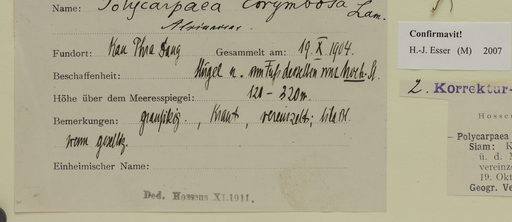 Name: Polycarpaea corymbosa Lam.
Fundort: Kau Phra Dang Gesammelt am: 19. X. 1904.
Beschaffenheit: Hügel u. am Fuß derselben
Höhe über dem Meeresspiegel: 120 – 320 m.
Bemerkungen: Kraut, vereinzelt; lila Bl.
wenn gesellig.
Einheimischer Name:
Ded. Hosseus XI.1911.
Confirmavit!
H.-J. Esser (M) 2007
2. Korrektur-
Hosse
Polycarpaea
Siam: K
ü. d. M
vereinze
19. Okt
Geogr. Ve